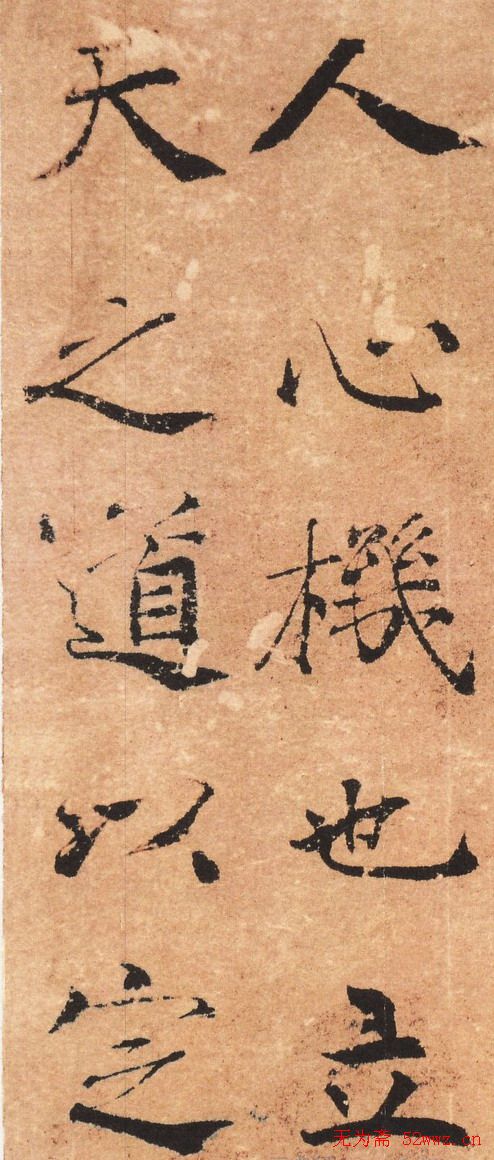 人心機也立
天之道以定
无为斋 52wwz.cn